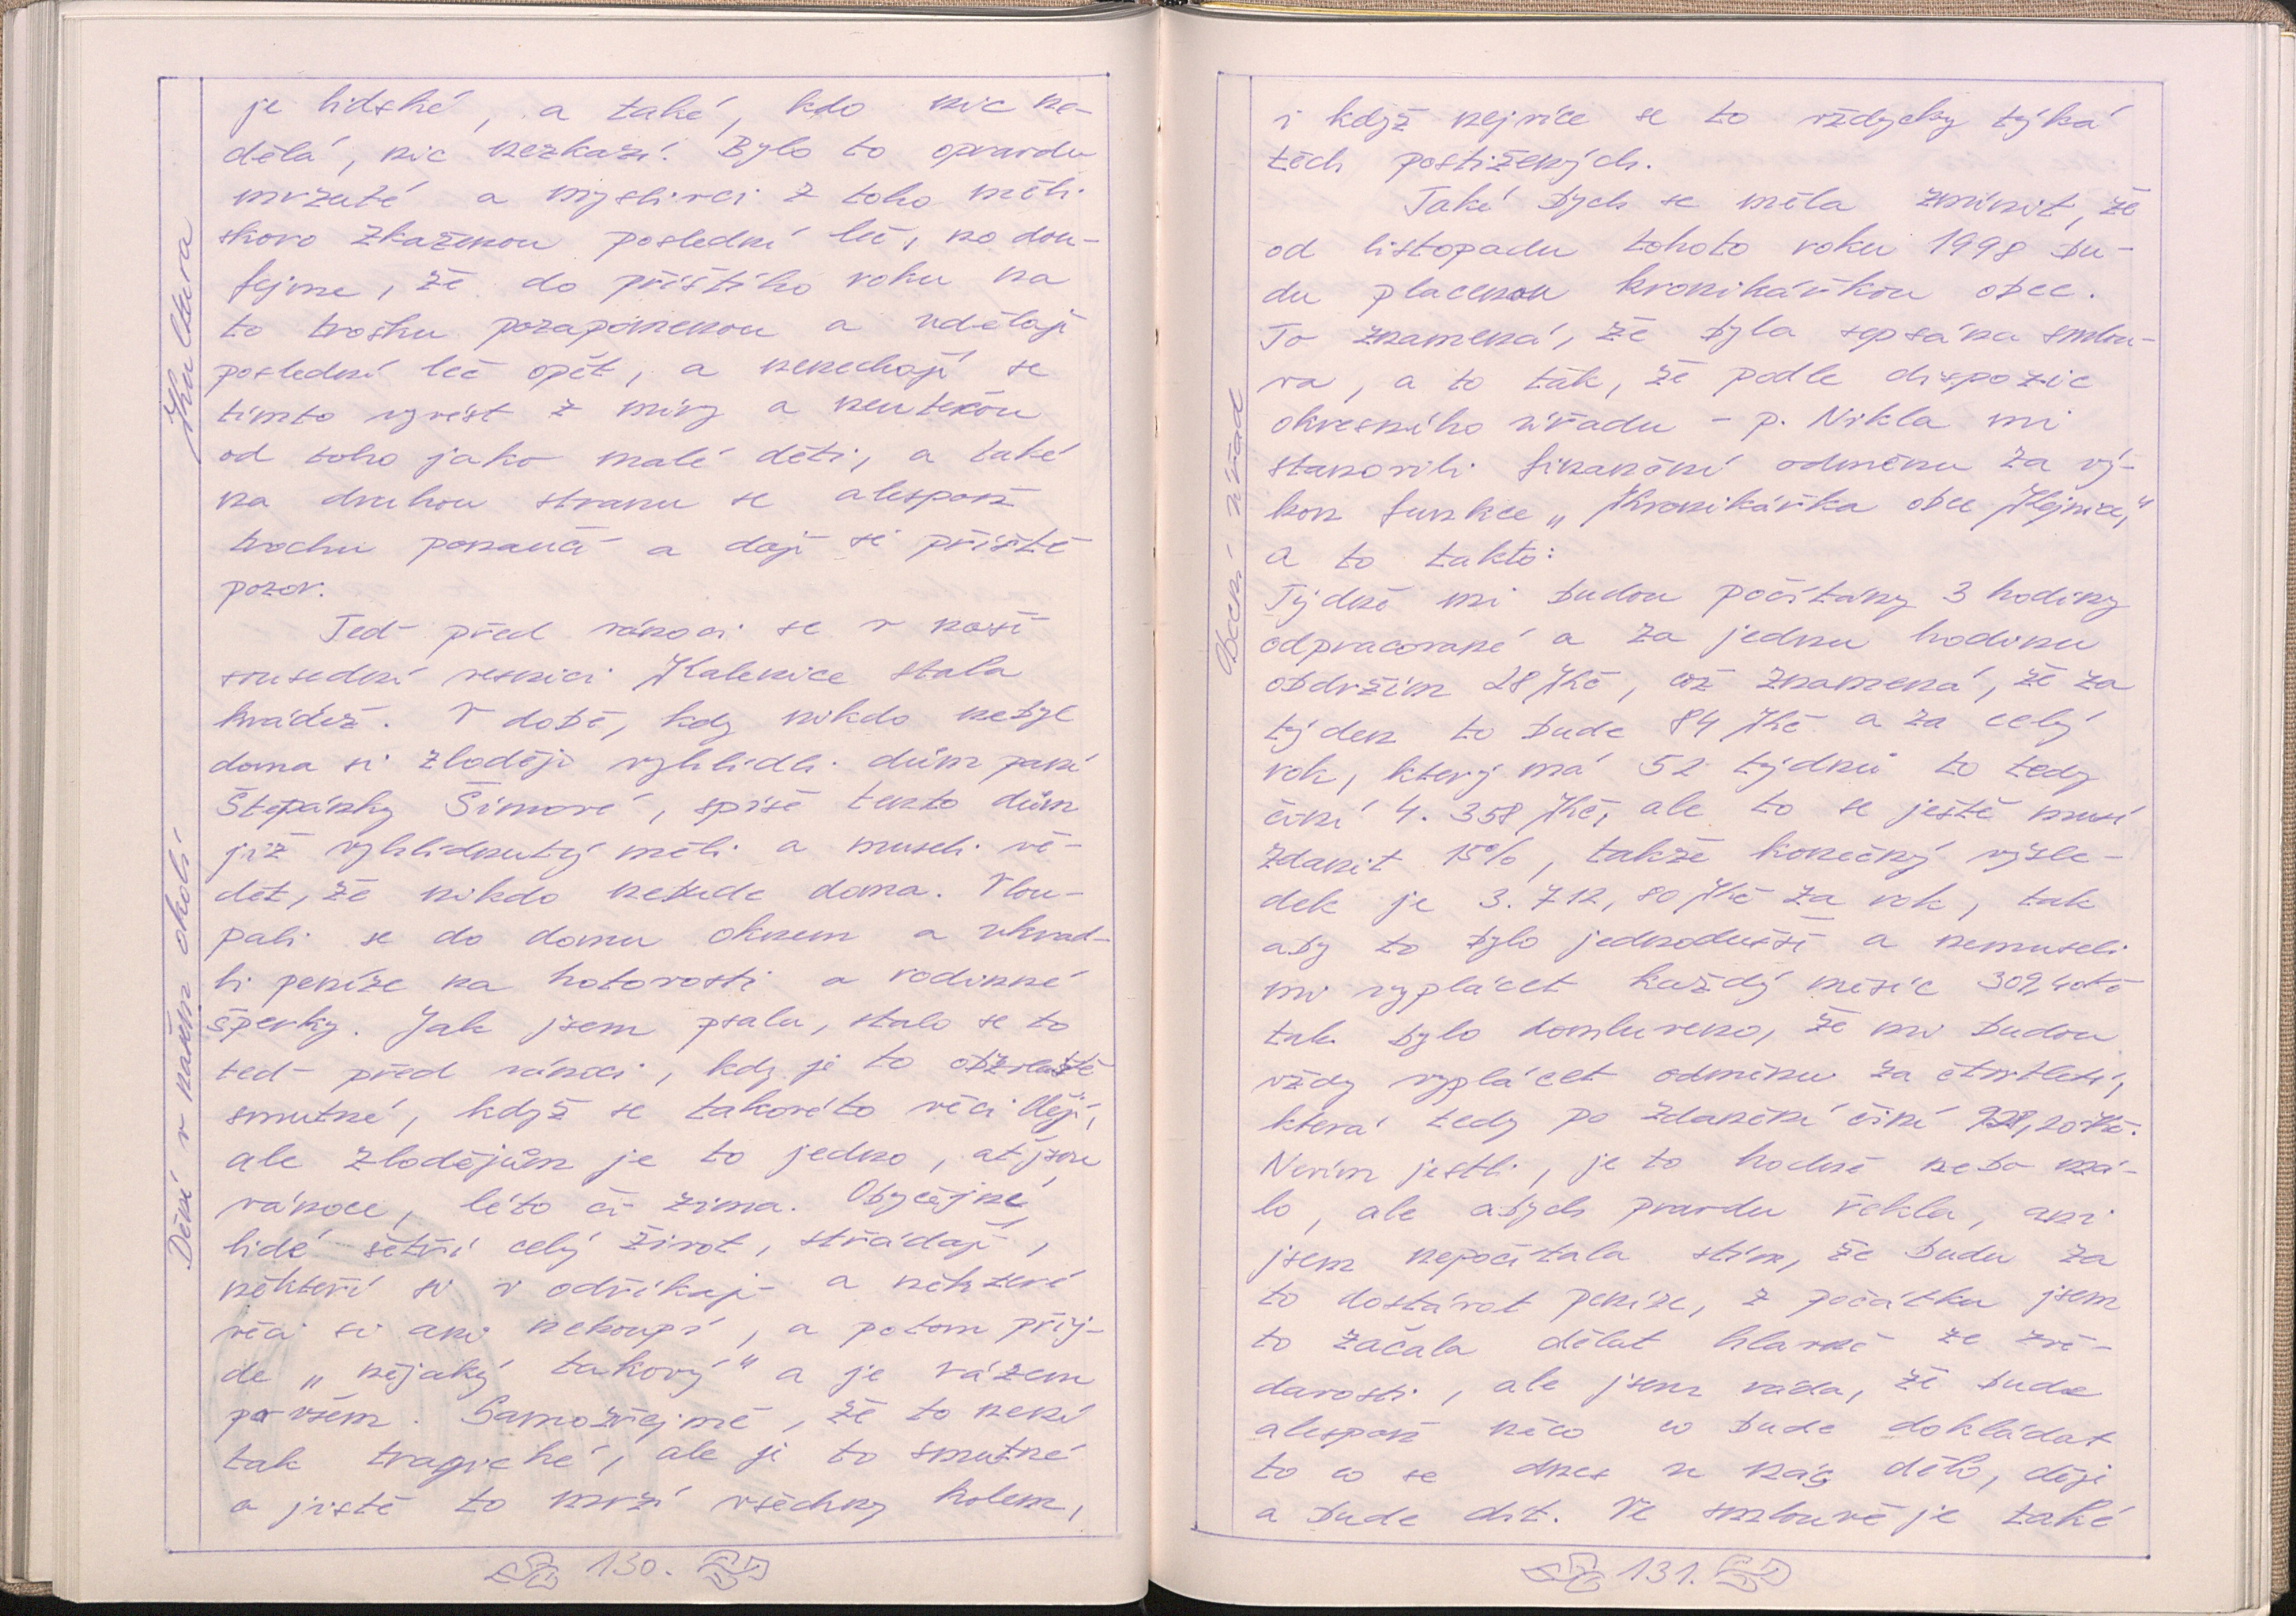 Kultura
je lidské, a také, kdo nic ne-
dělá, nic nezkazí. Bylo to opravdu
mrzuté a myslivci z toho měli
skoro zkaženou poslední leč, no dou-
fejme, že do příštího roku na
to trošku pozapomenou a udělají
poslední leč opět, a nenechají se
tímto vyvést z míry a neutečou
od toho jako malé děti, a také
na druhou stranu se alespoň
trochu ponaučí a dají si příště
pozor.
Dění v našem okolí
Teď před vánoci se v naší
sousední vesnici Kalenice stala
krádež. V době, kdy nikdo nebyl
doma si zloději vyhlídli dům paní
Štěpánky Šímové, spíše tento dům
již vyhlídnutý měli a museli vě-
dět, že nikdo nebude doma. Vlou-
pali se do domu oknem a ukrad-
li peníze na hotovosti a rodinné
šperky. Jak jsem psala, stalo se to
teď před vánoci, kdy je to obzvláště
smutné, když se takovéto věci dějí,
ale zlodějům je to jedno, ať jsou
vánoce, léto či zima. Obyčejné
lidé šetří celý život, střádají,
někteří si i odříkají a některé
věci si ani nekoupí, a potom přij-
de „nějaký takový“ a je rázem
po všem. Samozřejmě, že to není
tak tragické, ale je to smutné
a jistě to mrzí všechny kolem,
130.
i když nejvíce se to vždycky týká
těch postižených.
Obecní úřad
Také bych se měla zmínit, že
od listopadu tohoto roku 1998 bu-
du placenou kronikářkou obce.
To znamená, že byla sepsána smlou-
va, a to tak, že podle dispozic
okresního úřadu - p. Nikla mi
stanovili finanční odměnu za vý-
kon funkce „Kronikářka obce Hejnice,“
a to takto:
Týdně mi budou počítány 3 hodiny
odpracované a za jednu hodinu
obdržím 28 Kč, což znamená, že za
týden to bude 84 Kč a za celý
rok, který má 52 týdnů to tedy
činí 4. 358 Kč, ale to se ještě musí
zdanit 15%, takže konečný výsle-
dek je 3. 712, 80 Kč za rok, tak
aby to bylo jednodušší a nemuseli
mi vyplácet každý měsíc 309,40 Kč
tak bylo domluveno, že mi budou
vždy vyplácet odměnu za čtvrtletí,
která tedy po zdanění činí 928,20 Kč.
Nevím jestli, je to hodně nebo má-
lo, ale abych pravdu řekla, ani
jsem nepočítala stím, že budu za
to dostávat peníze, z počátku jsem
to začala dělat hlavně ze zvě-
davosti, ale jsem ráda, že bude
alespoň něco co bude dokládat
to co se dnes u nás dělo, děje
a bude dít. Ve smlouvě je také
131.